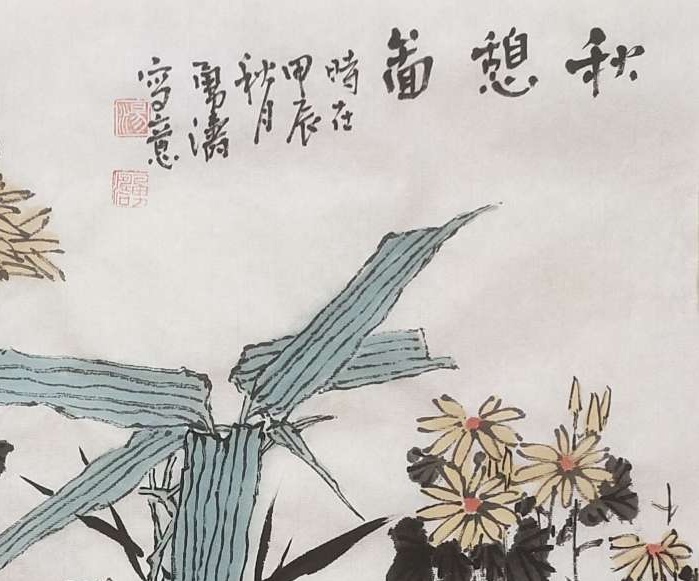 秋憩图
時在
甲辰
秋月
勇濤
寫意